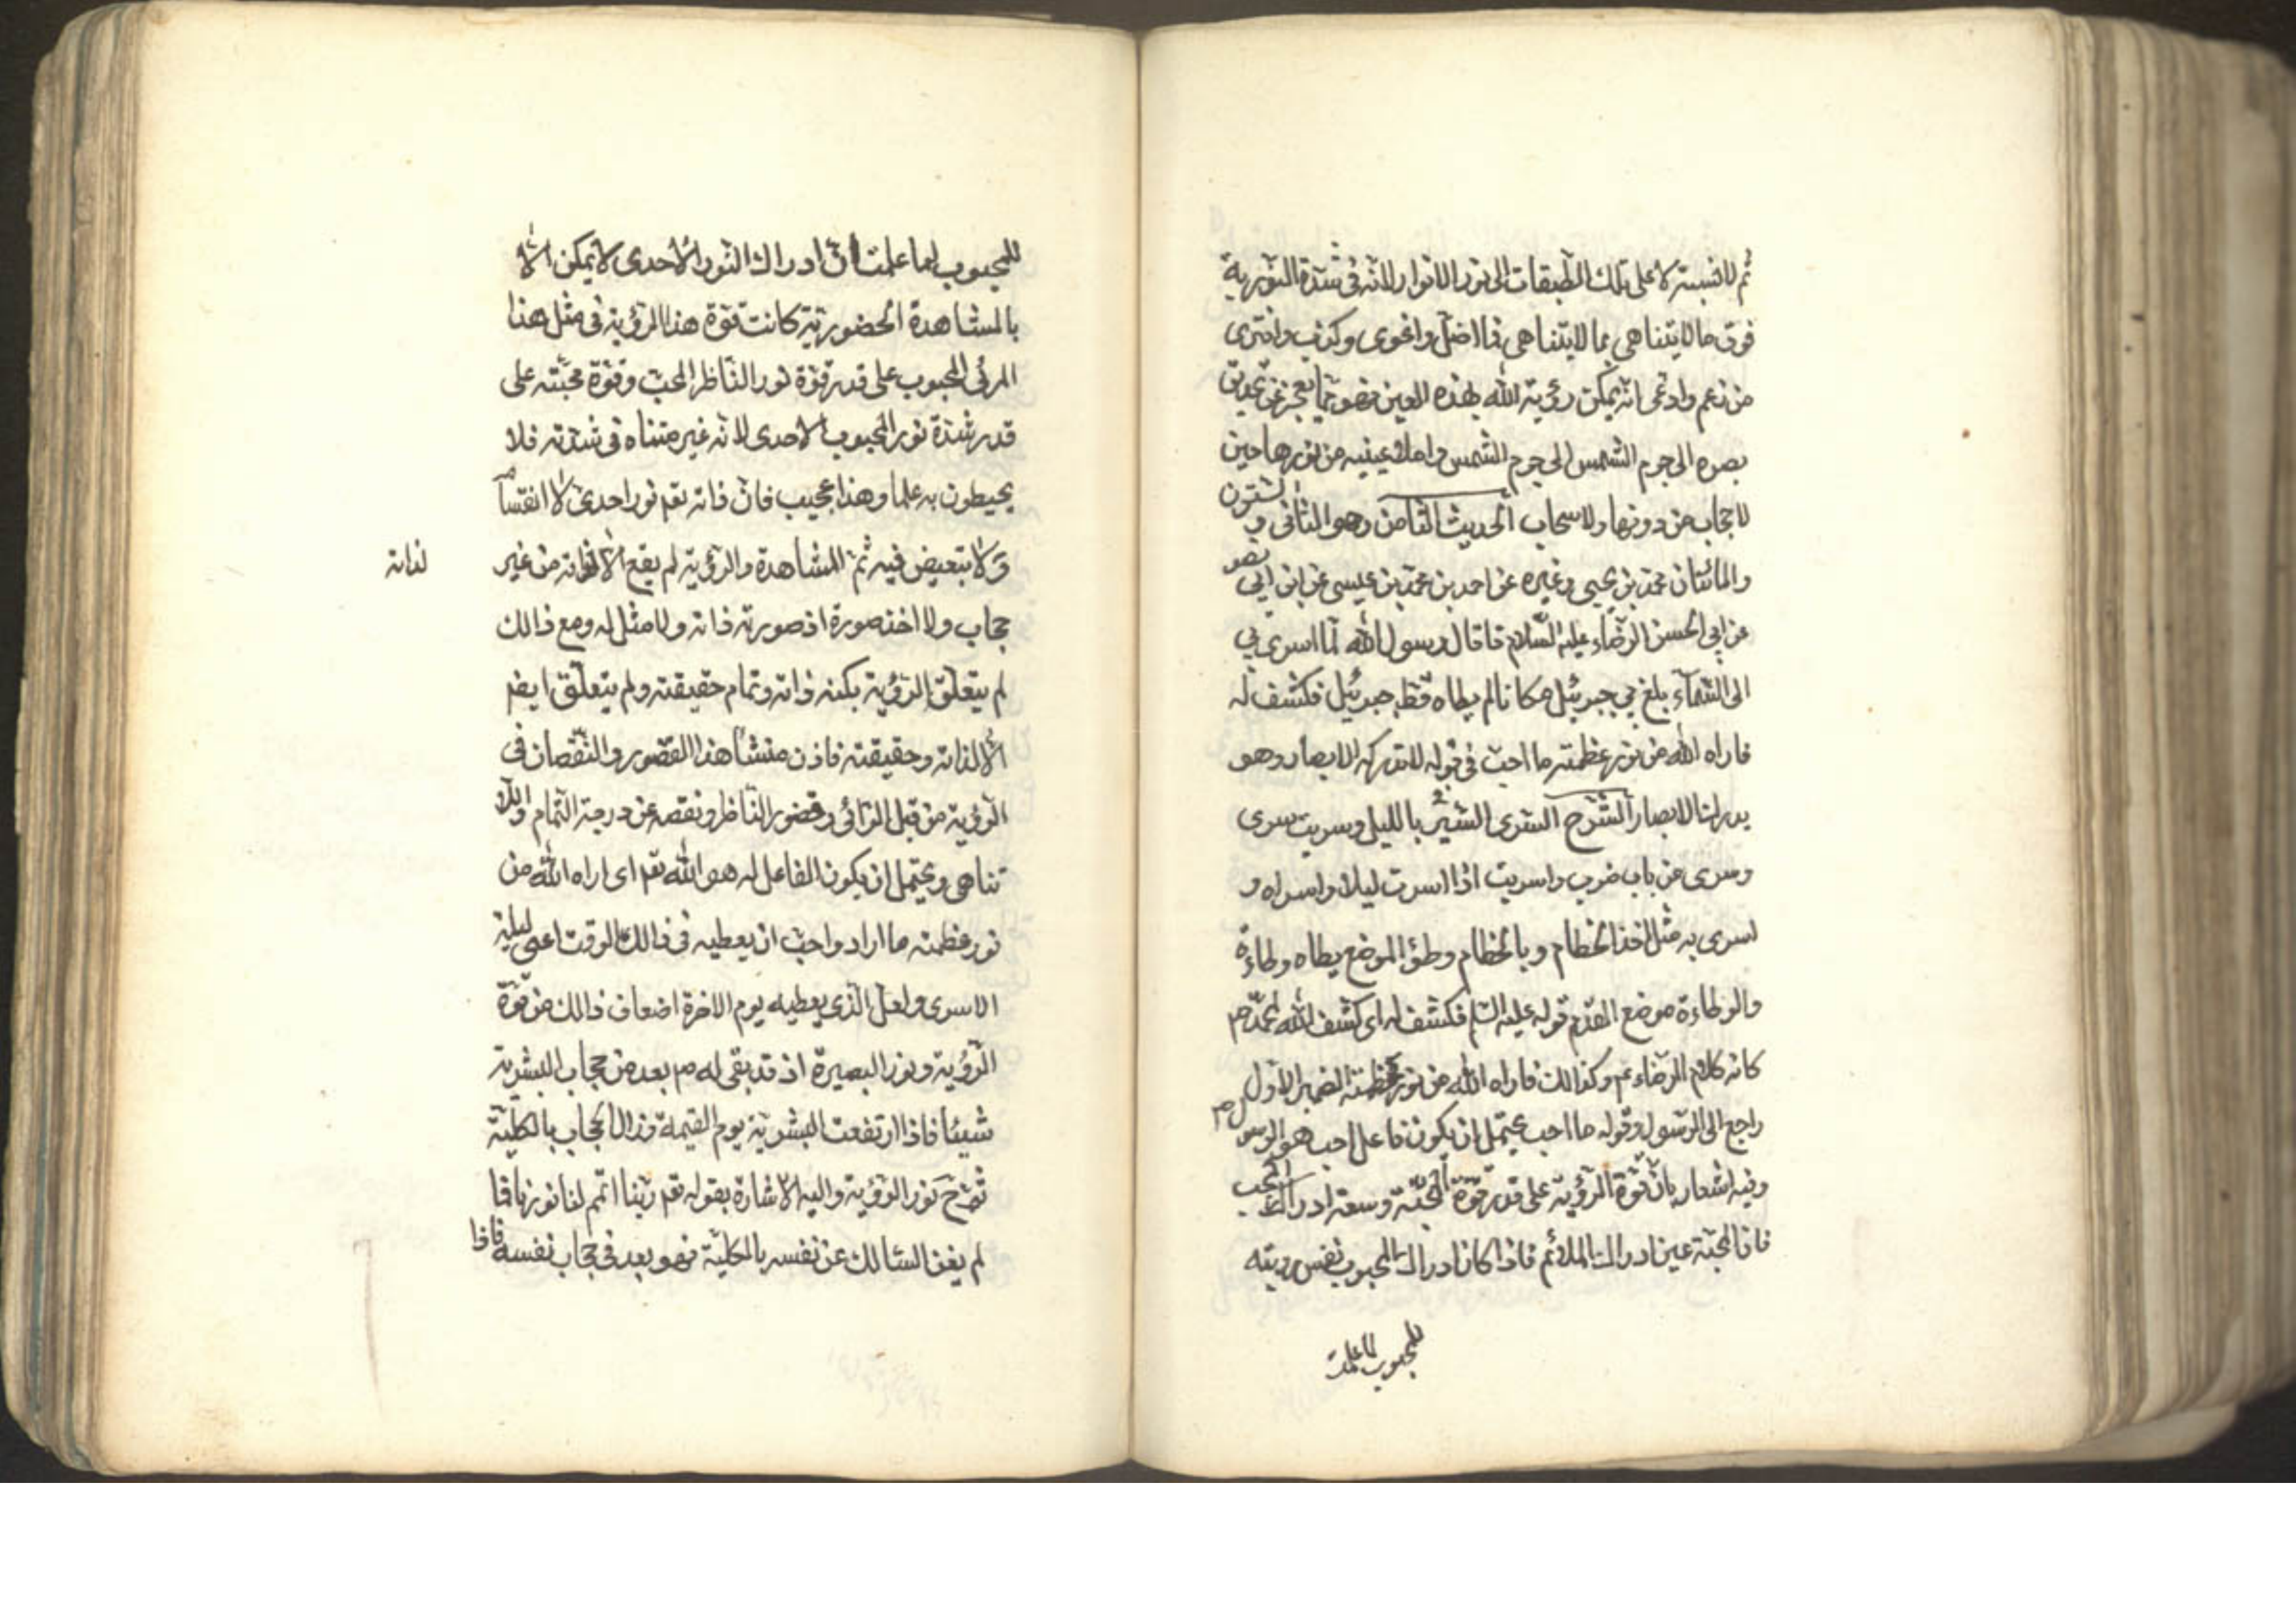 ثم لا نسبة لاعلى تلك الطبقات الى نور الانوار لانه فى شدة النورية
فوق ما لا يتناهى بما لا يتناهى فما اضل واغوى وكذب وافترى
من زعم وادعى انه يمكن رؤية الله بهذه العين فهو مما يعجز عن تحديق
بصره الى جرم الشمس الى جرم الشمس واملاء عينيه من نورها حين
لا حجاب من دونها ولا سحاب الحديث الثامن وهو الثانى و الستون
والمائتان محمد بن يحيى وغيره عن احمد بن محمد بن عيسى عن ابن ابى نصر
عن ابى الحسن الرضاء عليه السلام قا قال رسول الله لما اسرى بى
الى السماء بلغ بى جبرئيل مكانا لم يطاه قط جبرئيل فكشف له
فاراه الله من نور عظمته ما احب فى قوله لا تدركه الابصار وهو
يدرك الابصار الشرح السرى السير بالليل وسريت سرى
وسرى من باب ضرب واسريت اذا اسرت ليلا واسراه و
اسرى به مثل اخذ الخطام وبالخطام وطؤ الموضع يطاه وطاءة
والوطاءة موضع القدم قوله عليه السلم فكشف له اى كشف الله لمحمد ص
كانه كلام الرضاء عم وكذالك فاراه الله من نور عظمته الضمير الاول
راجع الى الرسول وقوله ما احب يحتمل ان يكون فاعل احب هو الرسول ص
وفيه اشعار بان قوة الرؤية على قدر قوة المحبة وسعة ادراك المحب
فان المحبة عين ادراك الملائم فاذا كان ادراك المحبوب نفس رويته
للمحبوب لما علمت
للمحبوب لما علمت ان ادراك النور الاحدى لا يمكن الا
بالمشاهدة الحضورية كانت قوة هذا الرؤية فى مثل هذا
المرئى المحبوب على قدر قوة نور الناظر المحب وقوة محبته على
قدر شدة نور المحبوب الاحدى لانه غير متناه فى شدته فلا
يحيطون به علما وهذا عجيب فان ذاته تعم نور احدى لا انقسام
ولا تبعيض فيه ثم المشاهدة والرؤية لم يقع الا لذاته من غير
لذاته
حجاب ولا اخذ صورة اذ صورته ذاته ولا مثل له ومع ذالك
لم يتعلق الرؤية بكنه ذاته وتمام حقيقته ولم يتعلق ايضم
الا لذاته وحقيقته فاذن منشأ هذا القصور والنقصان فى
الرؤية من قبل الرائى وقصور الناظر ونقصه عن درجة التمام واللا
تناهى ويحتمل ان يكون الفاعل له هو الله تعم اى اراه الله من
نور عظمته ما اراد واحب ان يعطيه فى ذالك الوقت اعنى ليلة
الاسرى ولعل الذى يعطيه يوم الاخرة اضعاف ذالك من قوة
الرؤية ونور البصيرة اذ قد بقى له ص بعد من حجاب البشرية
شيئا فاذا ارتفعت البشرية يوم القيمة وزال الحجاب بالكلية
تصح نور الرؤية واليه الاشارة بقوله تعم ربنا اتمم لنا نورنا فما
لم يفن السالك عن نفسه بالكلية فهو بعد فى حجاب نفسه فاذا